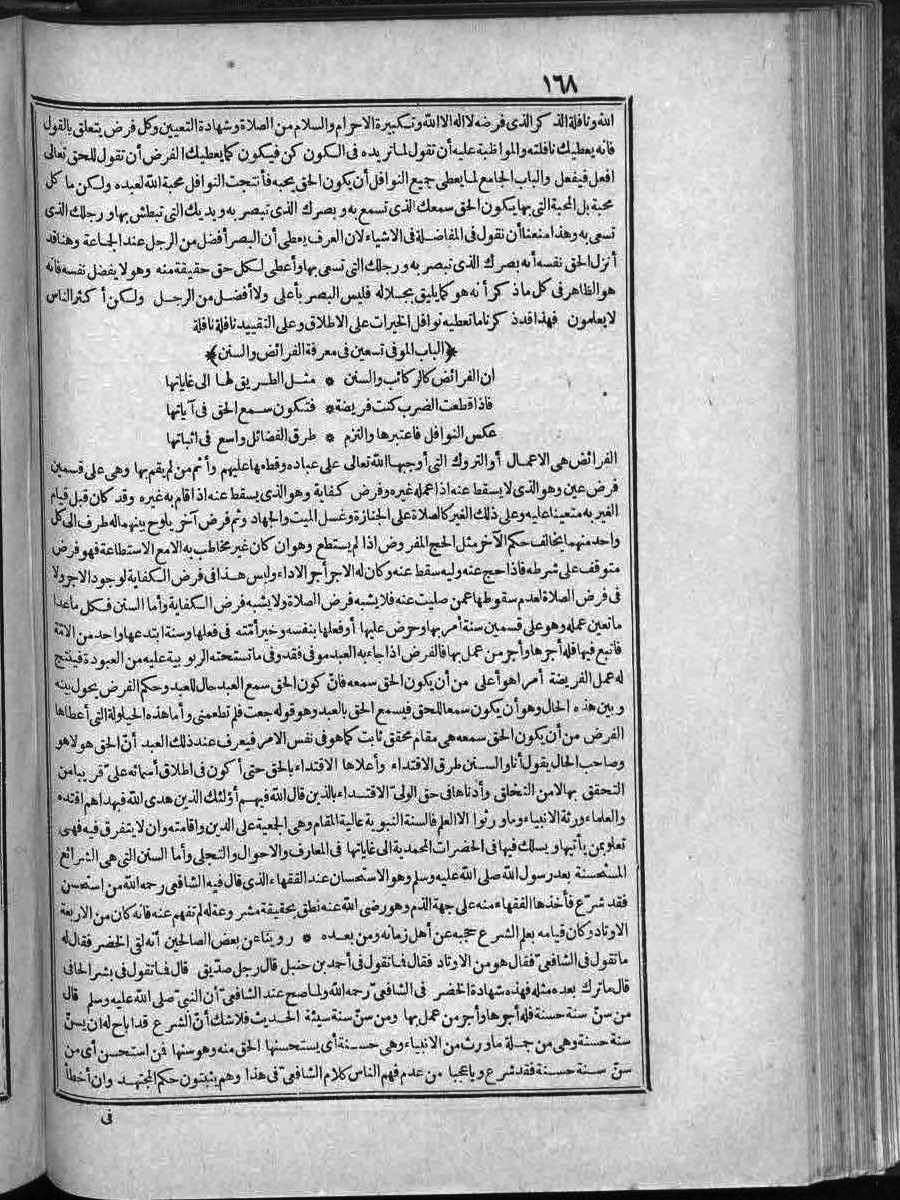 ١٦٨
الله ونافلة الذكر الذى فرضه لا اله الا الله وتكبيرة الاحرام والسلام من الصلاة وشهادة التعيين وكل فرض يتعلق بالقول
فانه يعطيك نافلته والمواظبة عليه أن تقول لما تريده فى الكون كن فيكون كما يعطيك الفرض أن تقول للحق تعالى
افعل فيفعل والباب الجامع لما يعطى جميع النوافل أن يكون الحق يحبه فأنتجت النوافل محبة الله لعبده ولكن ما كل
محبة بل المحبة التى بها يكون الحق سمعك الذى تسمع به وبصرك الذى تبصر به ويديك التى تبطش بها ورجلك الذى
تسعى به وهذا منعنا أن نقول فى المفاضلة فى الاشياء لان العرف يعطى أن البصر أفضل من الرجل عند الجماعة وهنا قد
أنزل الحق نفسه أنه بصرك الذى تبصر به ورجلك التى تسعى بها وأعطى لكل حق حقيقة منه وهو لا يفضل نفسه فانه
هو الظاهر فى كل ما ذكر أنه هو كما يليق بجلاله فليس البصر بأعلى ولا أفضل من الرجل ولكن أكثر الناس
لا يعلمون فهذا قد ذكرنا ما تعطيه نوافل الخيرات على الاطلاق وعلى التقييد نافلة نافلة
﴿الباب الموفى تسعين فى معرفة الفرائض والسنن﴾
ان الفرائض كالركائب والسنن * مثل الطريق لها الى غاياتها
فاذا قطعت الضرب كنت فريضة * فتكون سمع الحق فى آياتها
عكس النوافل فاعتبرها والتزم * طرق الفضائل واسع فى اثباتها
الفرائض هى الاعمال أو التروك التى أوجبها الله تعالى على عباده وقطعها عليهم وأثم من لم يقم بها وهى على قسمين
فرض عين وهو الذى لا يسقط عنه اذا عمله غيره وفرض كفاية وهو الذى يسقط عنه اذا قام به غيره وقد كان قبل قيام
الغير به متعينا عليه وعلى ذلك الغير كالصلاة على الجنازة وغسل الميت والجهاد وثم فرض آخر يلوح بينهما له طرف الى كل
واحد منهما يخالف حكم الآخر مثل الحج المفروض اذا لم يستطع وهو ان كان غير مخاطب به الا مع الاستطاعة فهو فرض
متوقف على شرطه فاذا حج عنه وليه سقط عنه وكان له الاجر أجر الاداء وليس هذا فى فرض الكفاية لوجود الاجر ولا
فى فرض الصلاة لعدم سقوطها عمن صليت عنه فلا يشبه فرض الصلاة ولا يشبه فرض الكفاية وأما السنن فكل ما عدا
ما تعين عمله وهو على قسمين سنة أمر بها وحرض عليها أو فعلها بنفسه وخير أمته فى فعلها وسنة ابتدعها واحد من الامة
فاتبع فيها فله أجرها وأجر من عمل بها فالفرض اذا جاء به العبد موفى فقد وفى ما تستحقه الربوبية عليه من العبودة فينتج
له عمل الفريضة أمرا هو أعلى من أن يكون الحق سمعه فانّ كون الحق سمع العبد حال للعبد وحكم الفرض يحول بينه
وبين هذه الحال وهو أن يكون سمعا للحق فيسمع الحق بالعبد وهو قوله جعت فلم تطعمنى وأما هذه الحيلولة التى أعطاها
الفرض من أن يكون الحق سمعه هى مقام محقق ثابت كما هو فى نفس الامر فيعرف عند ذلك العبد أنّ الحق هو لا هو
وصاحب الحال يقول أنا والسنن طرق الاقتداء وأعلاها الاقتداء بالحق حتى أكون فى اطلاق أسمائه علىّ قريبا من
التحقق بها لا من التخلق وأدناها فى حق الولىّ الاقتداء بالذين قال الله فيهم أولئك الذين هدى الله فبهداهم اقتده
والعلماء ورثة الانبياء وما ورثوا الا العلم فالسنة النبوية عالية المقام وهى الجمعية على الدين واقامته وان لا يتفرق فيه فهى
تعلو بمن يأتيها ويسلك فيها فى الحضرات المحمدية الى غاياتها فى المعارف والاحوال والتجلى وأما السنن التى هى الشرائع
المستحسنة بعد رسول الله صلى الله عليه وسلم وهو الاستحسان عند الفقهاء الذى قال فيه الشافعى رحمه الله من استحسن
فقد شرّع فأخذها الفقهاء منه على جهة الذم وهو رضى الله عنه نطق بحقيقة مشروعة له لم تفهم عنه فانه كان من الاربعة
الاوتاد وكان قيامه بعلم الشرع حجبه عن أهل زمانه ومن بعده * روينا عن بعض الصالحين أنه لقى الخضر فقال له
ما تقول فى الشافعىّ فقال هو من الاوتاد فقال فما تقول فى أحمد بن حنبل قال رجل صدّيق قال فما تقول فى بشر الحافى
قال ما ترك بعده مثله فهذه شهادة الخضر فى الشافعىّ رحمه الله ولما صح عند الشافعىّ أن النبىّ صلى الله عليه وسلم قال
من سنّ سنة حسنة فله أجرها وأجر من عمل بها ومن سنّ سنة سيئة الحديث فلا شك أنّ الشرع قد اباح له ان يسنّ
سنة حسنة وهى من جملة ما ورث من الانبياء وهى حسنة أى يستحسنها الحق منه وهو سنها فمن استحسن أى من
سنّ سنة حسنة فقد شرع ويا عجبا من عدم فهم الناس كلام الشافعىّ فى هذا وهم يثبتون حكم المجتهد وان أخطأ
فى